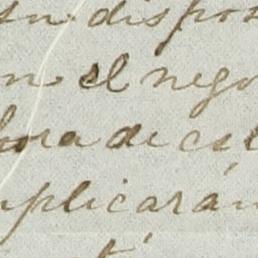 su dispos
n el nego
hora de es
plicarán